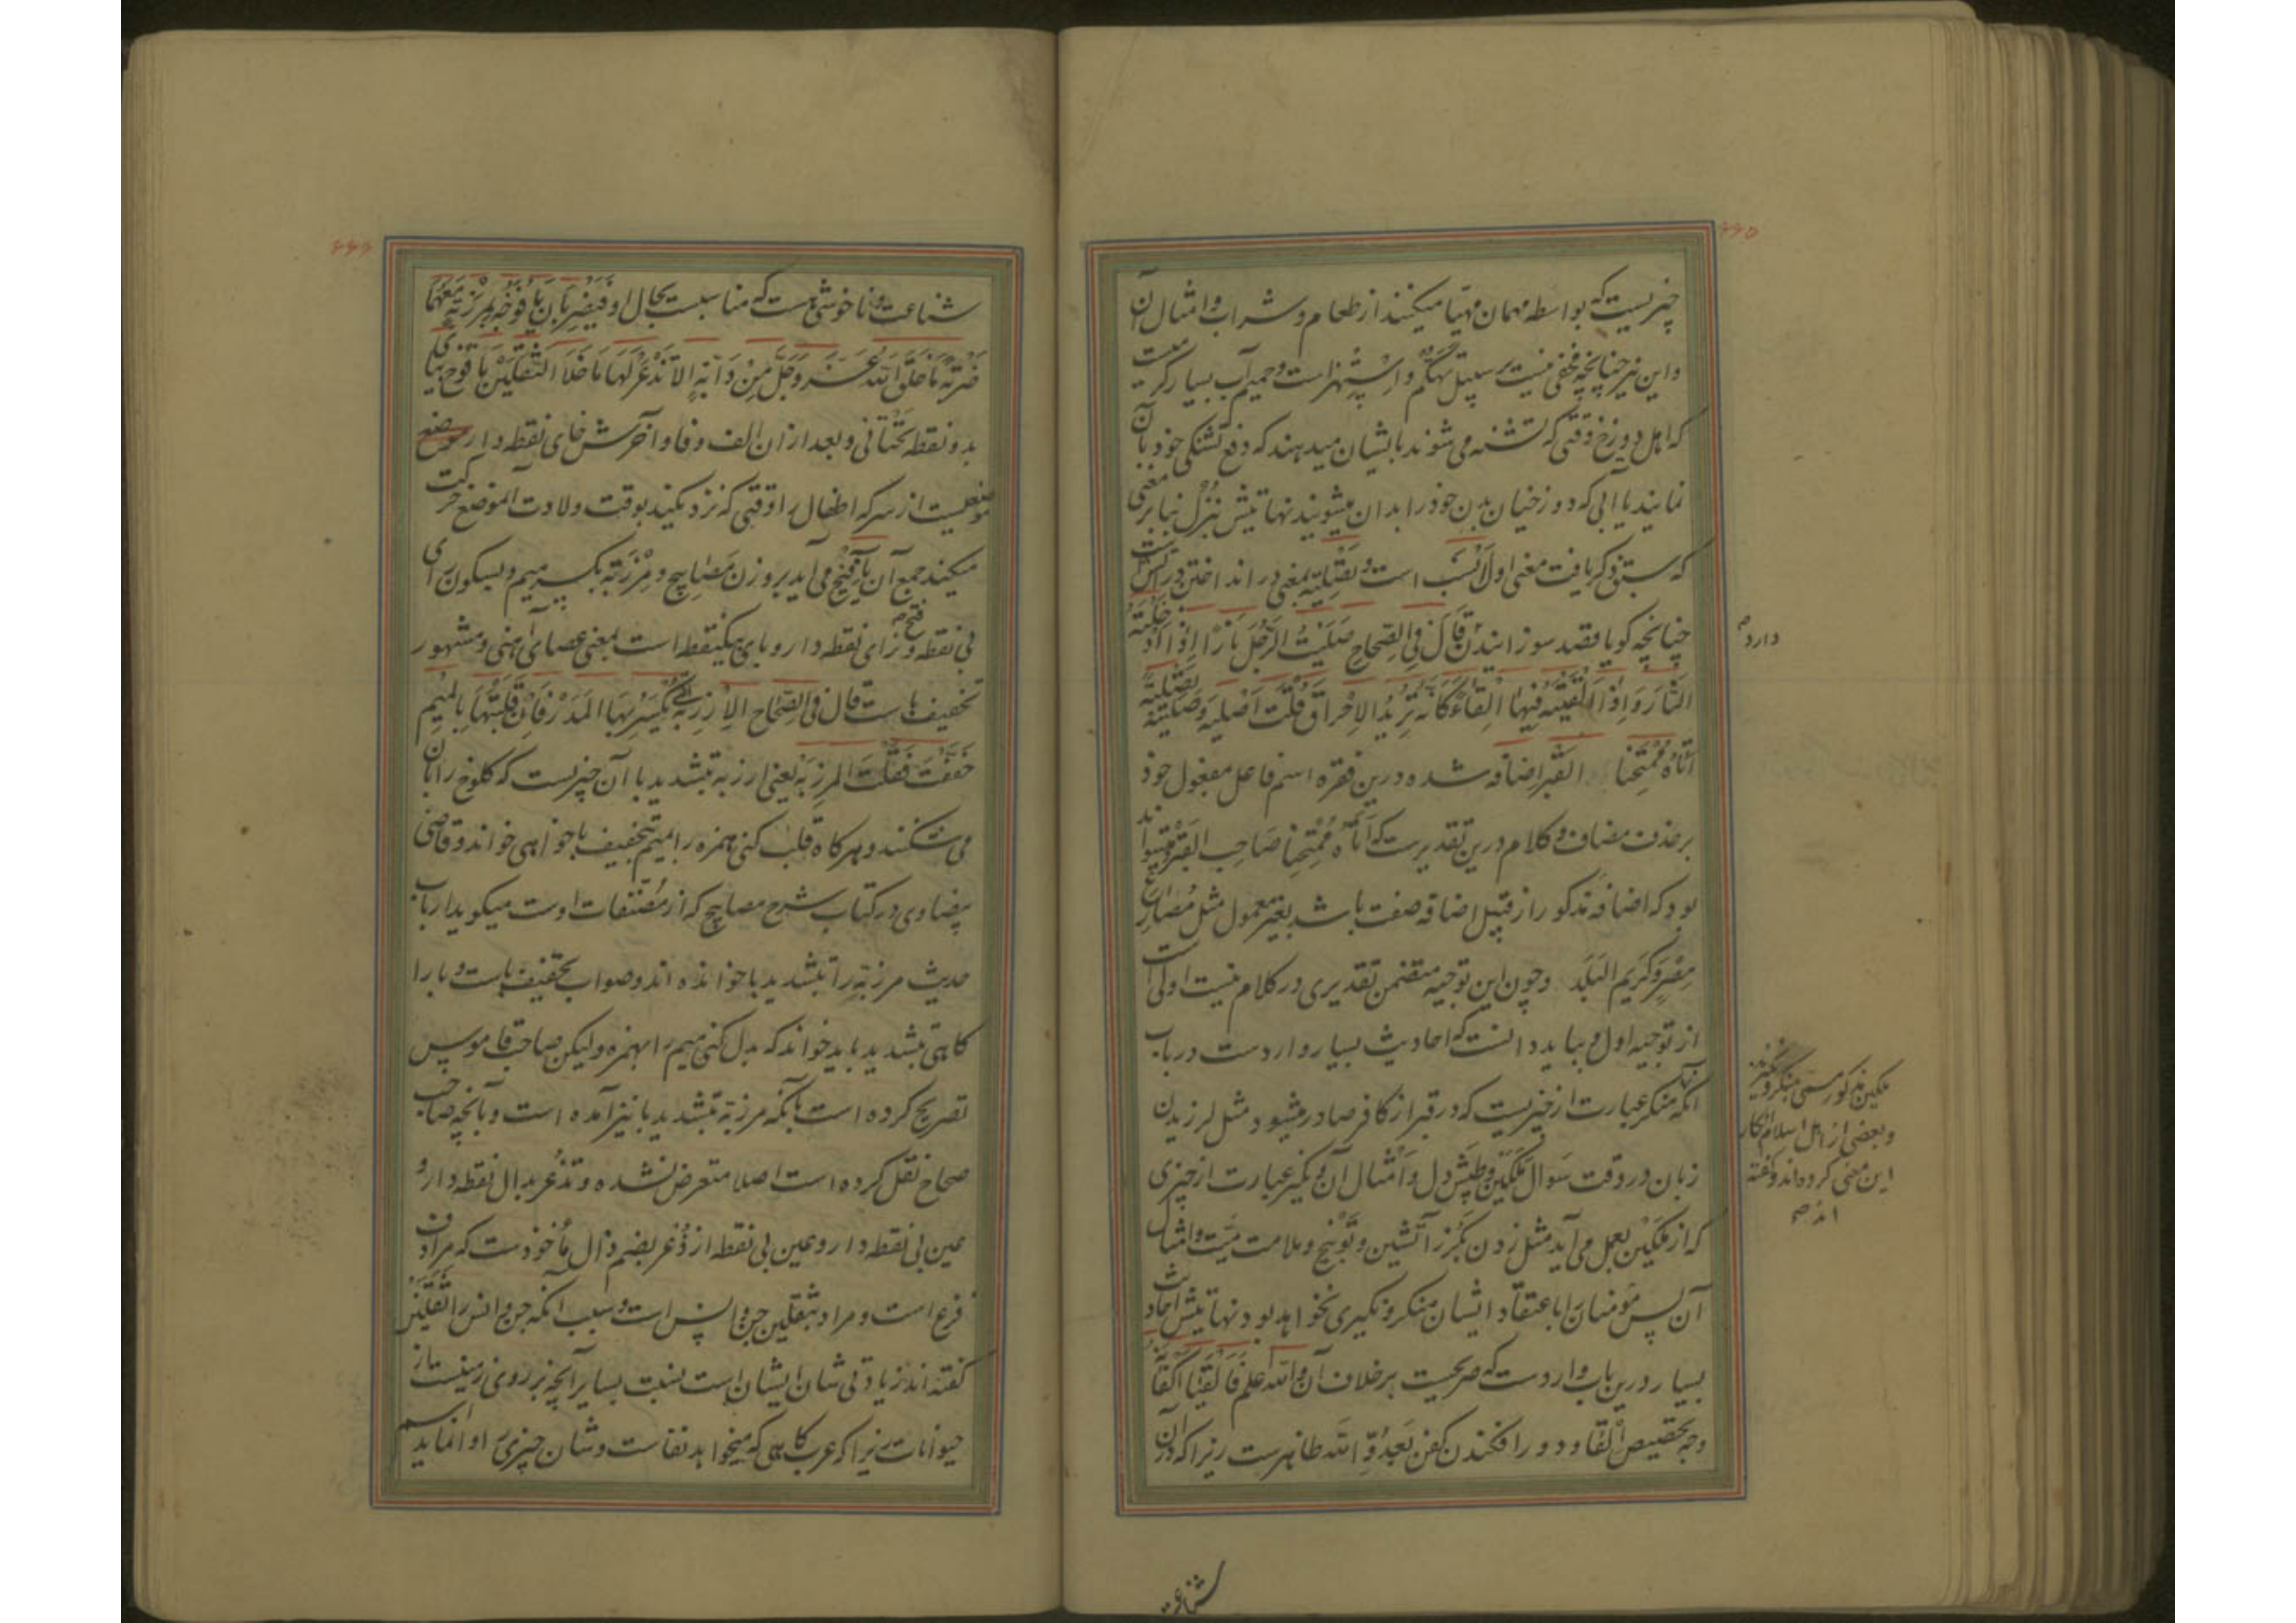 ۴۴۵
چیزیست که بواسطه مهمان مهیا میکنند از طعام و شراب و امثال آن
و این نیز چنانچه مخفی نیست بر سبیل تهکم و استهزاست و حمیم آب بسیار گرمیست
که اهل دوزخ وقتی که تشنه می شوند بایشان میدهند که دفع تشنگی خود بآن
نمایند یا آبی که دوزخیان بدن خود را بدان میشویند نهایتش نزل بنابر معنی
که سبق ذکر یافت معنی اول انسب است و تصلیه بمعنی در انداختن در آتش است
چنانچه گویا قصد سوزانیدن قال فی الصحاح صلیت الرجل نارا اذا ادخلته
دارد
النار و اذا القیته فیها القاء کانه یرید الاحراق قلت اصلیه و صلیته تصلیة
اتاه ممتحنا القبر اضافه شده درین فقره اسم فاعل مفعول خود
بر حذف مضاف و کلام درین تقدیرست که اتاه ممتحنا صاحب القبر و میتواند
بود که اضافه مذکور از قبیل اضافه صفت باشد بغیر معمول مثل مصارع
مصر و کریم البلد و چون این توجیه متضمن تقدیری در کلام نیست اولی است
از توجیه اول و بباید دانست که احادیث بسیار واردست در باب
آنکه
ملکین مذکور مسمی بمنکر و نکیرند
و بعضی از اهل اسلام انکار
این معنی کرده اند و گفته
اند
منکر عبارت از چیزیست که در قبر از کافر صادر میشود مثل لرزیدن
زبان در وقت سؤال ملکین و طپش دل و امثال آن و نکیر عبارت از چیزی
که از ملکین بعمل می آید مثل زدن بگرز آتشین و توبیخ و ملامت میت و امثال
آن پس مؤمنان را باعتقاد ایشان منکر و نکیری نخواهد بود نهایتش احادیث
بسیار درین باب واردست که صریحست بر خلاف آن والله اعلم فالقیا اکفانه
وجه تخصیص القا و دور افکندن کفن بعدو الله ظاهرست زیرا که در آن
شناعت
۴۴۶
شناعت و ناخوشی هست که مناسبست بحال او فیضربان یافوخه بمرزبة معهما
ضربة ما خلق الله عز و جل من دابة الا تذعر لها ما خلا الثقلین یافوخ بیا
بدو نقطه تحتانی و بعد از آن الف و فا و آخرش خای نقطه دار
موضعیست از سر که اطفال را وقتی که نزدیکند بوقت ولادت آن موضع حرکت
میکند جمع آن یآفیخ می آید بر وزن مصابیح و مرزبة بکسر میم و بسکون رای
بی نقطه و فتح زای نقطه دار و بای یکنقطه است بمعنی عصای آهنی و مشهور
تخفیف باست قال فی الصحاح الارزبة التی یکسر بها المدر فان قلبتها بالمیم
خففت فقلت المرزبة یعنی ارزبه بتشدید با آن چیزیست که کلوخ را بآن
می شکنند و هر کاه قلب کنی همزه را بمیم بتخفیف با خواهی خواند و قاضی
بیضاوی در کتاب شرح مصابیح که از مصنفات اوست میگوید ارباب
حدیث مرزبه را بتشدید با خوانده اند و صواب تخفیف باست و با را
کاهی بتشدید باید خواند که بدل کنی میم را بهمزه و لیکن صاحب قاموس
تصریح کرده است بآنکه مرزبه بتشدید با نیز آمده است و بآنچه صاحب
صحاح نقل کرده است اصلا متعرض نشده و تذعر بدال نقطه دار و
عین بی نقطه دار و عین بی نقطه از ذعر بضم ذال مأخوذست که مرادف
فزع است و مراد بثقلین جن و انس است و سبب آنکه جن و انس را ثقلین
گفته اند زیادتی شان ایشان است بنسبت بسایر آنچه بر روی زمینست از
حیوانات زیرا که عرب کاهی که میخواهد نفاست و شان چیزی را وانماید اسم